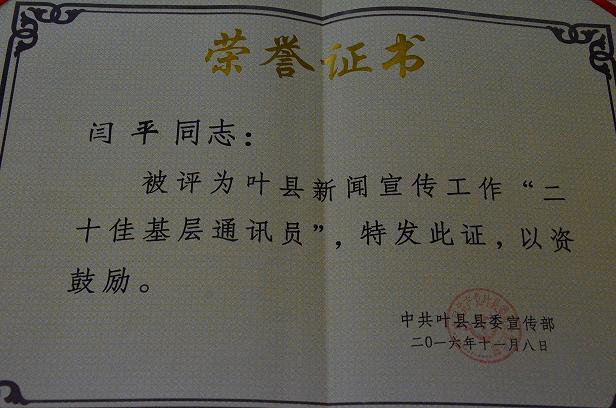 荣誉证书
闫平同志：
被评为叶县新闻宣传工作“二
十佳基层通讯员”，特发此证，以资
鼓励。
中共叶县县委宣传部
二〇一六年十一月八日